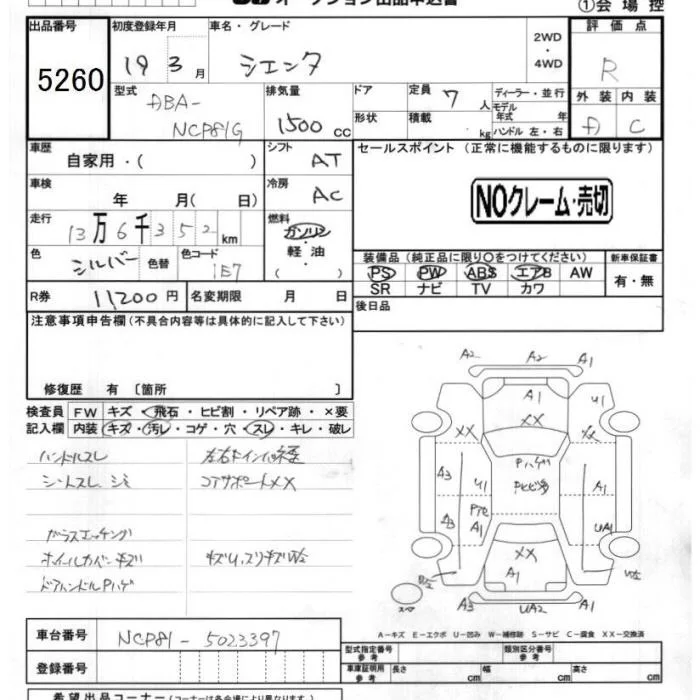 オークション出品申込書
①会場控
出品番号
5260
初度登録年月
19 3 月
車名・グレード
シエンタ
2WD
・
4WD
評価点
R
型式
DBA-
NCP81G
排気量
1500 cc
ドア
形状
定員 7 人
積載 kg
ディーラー・並行
モデル年式 年
ハンドル 左・右
外装 内装
A C
車歴
自家用・( )
シフト
AT
セールスポイント (正常に機能するものに限ります)
NOクレーム・売切
車検
年 月( 日)
冷房
AC
走行
13万6千352km
燃料
ガソリン
軽油
( )
色
シルバー
色替
色コード
1E7
装備品(純正品に限り○をつけてください)
PS PW ABS エアB AW
SR ナビ TV カワ
新車保証書
有・無
R券 11,200円
名変期限 月 日
後日品
注意事項申告欄(不具合内容等は具体的に記入して下さい)
修復歴 有 〔箇所 〕
検査員
記入欄
FW キズ・飛石・ヒビ割・リペア跡・×要
内装 キズ・汚レ・コゲ・穴・スレ・キレ・破レ
ハンドルスレ
シートスレ シミ
コアサポートXX
ガラスエッチング
ホイールカバーキズ
ドアハンドルPハゲ
A2 A2 A1
A1 U1
XX XX
Pハゲ
A3 U1 A1
A3 A1 UA1
XX
A1
A3 UA2 A1
スペア
A-キズ E-エクボ U-凹み W-補修跡 S-サビ C-腐食 XX-交換済
車台番号
NCP81-5023397
登録番号
型式指定番号
参考
類別区分番号
参考
車庫証明用
参考
長さ cm 幅 cm 高さ cm
希望出品コーナー(コーナーは各会場により異なります)